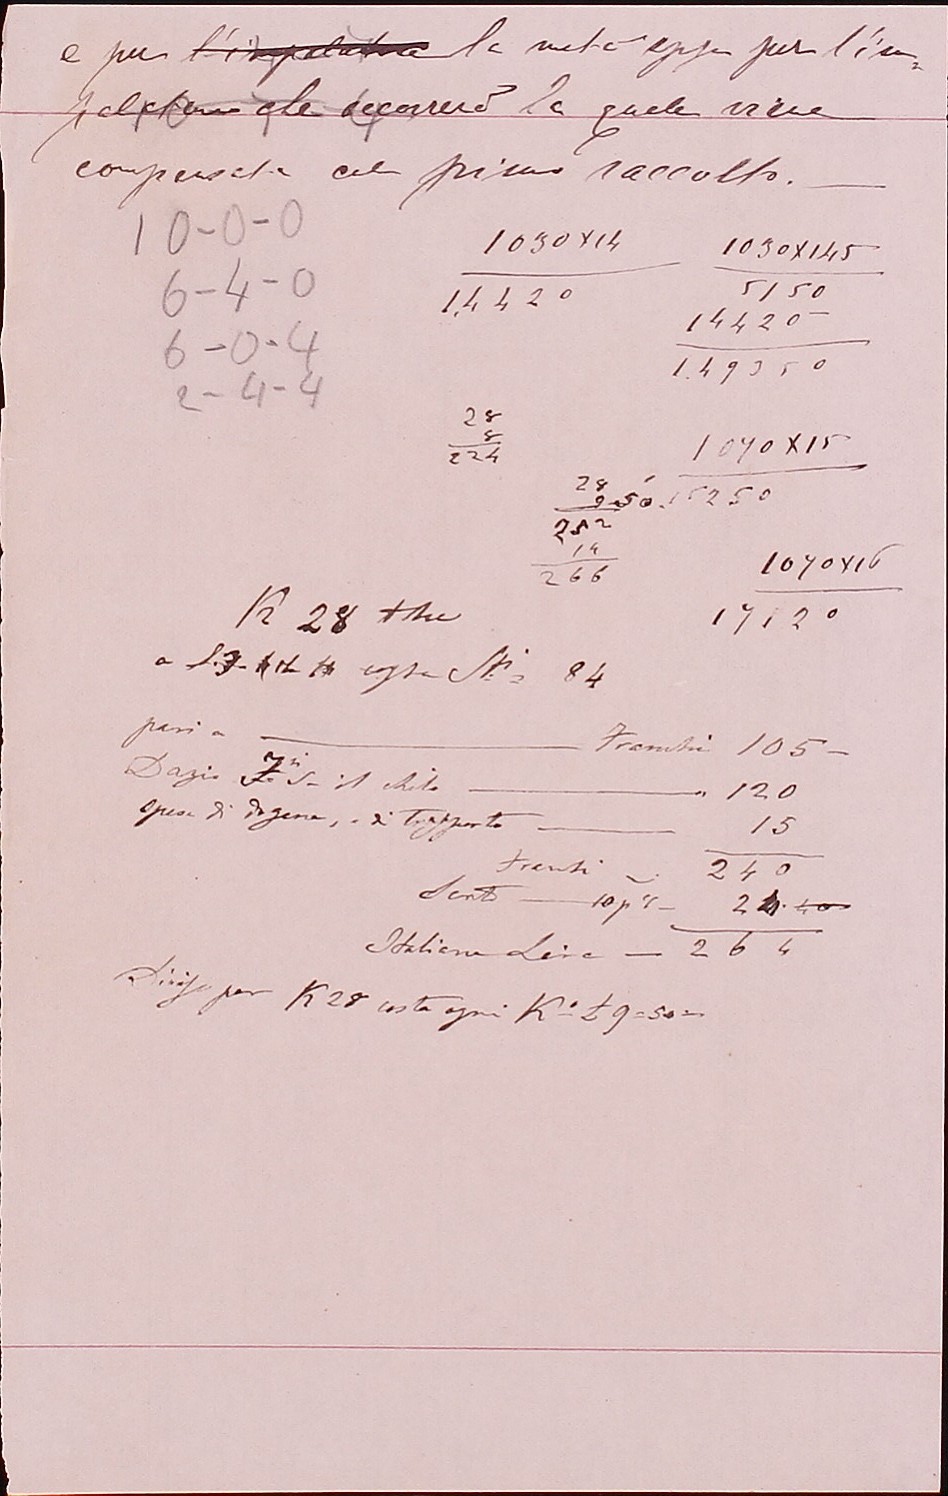 e per l'impalatura la metà oppu per l'im=
che occorrerà la quale viene
compensata col primo raccolto. —
10-0-0
6-4-0
6-0-4
2-4-4
1030 X 14
14420
1030 X 145
5150
14420-
149350
28
8
224
28
9.50.
252
14
266
1070 X 15
15250
1070 X 16
17120
K 28 the
a costa = 84
pari a — Franchi 105-
Dazio il chilo — " 120
spese di dogana, e di trapporto — 15
Franchi 240
Sconto — 10 p% - 24.40
Italiane Lire — 264
Diviso per K 28 costa ogni K° £ 9=50=